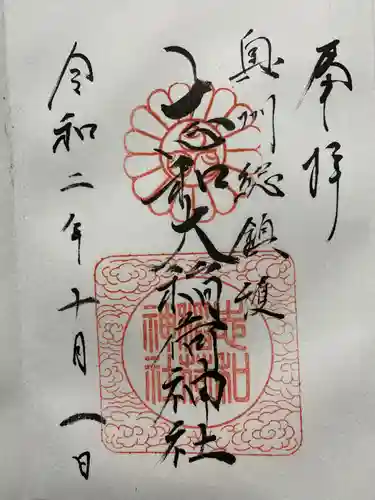 奉拝
奥州総鎮護
志和大稲荷神社
令和二年十月一日
志和
神社